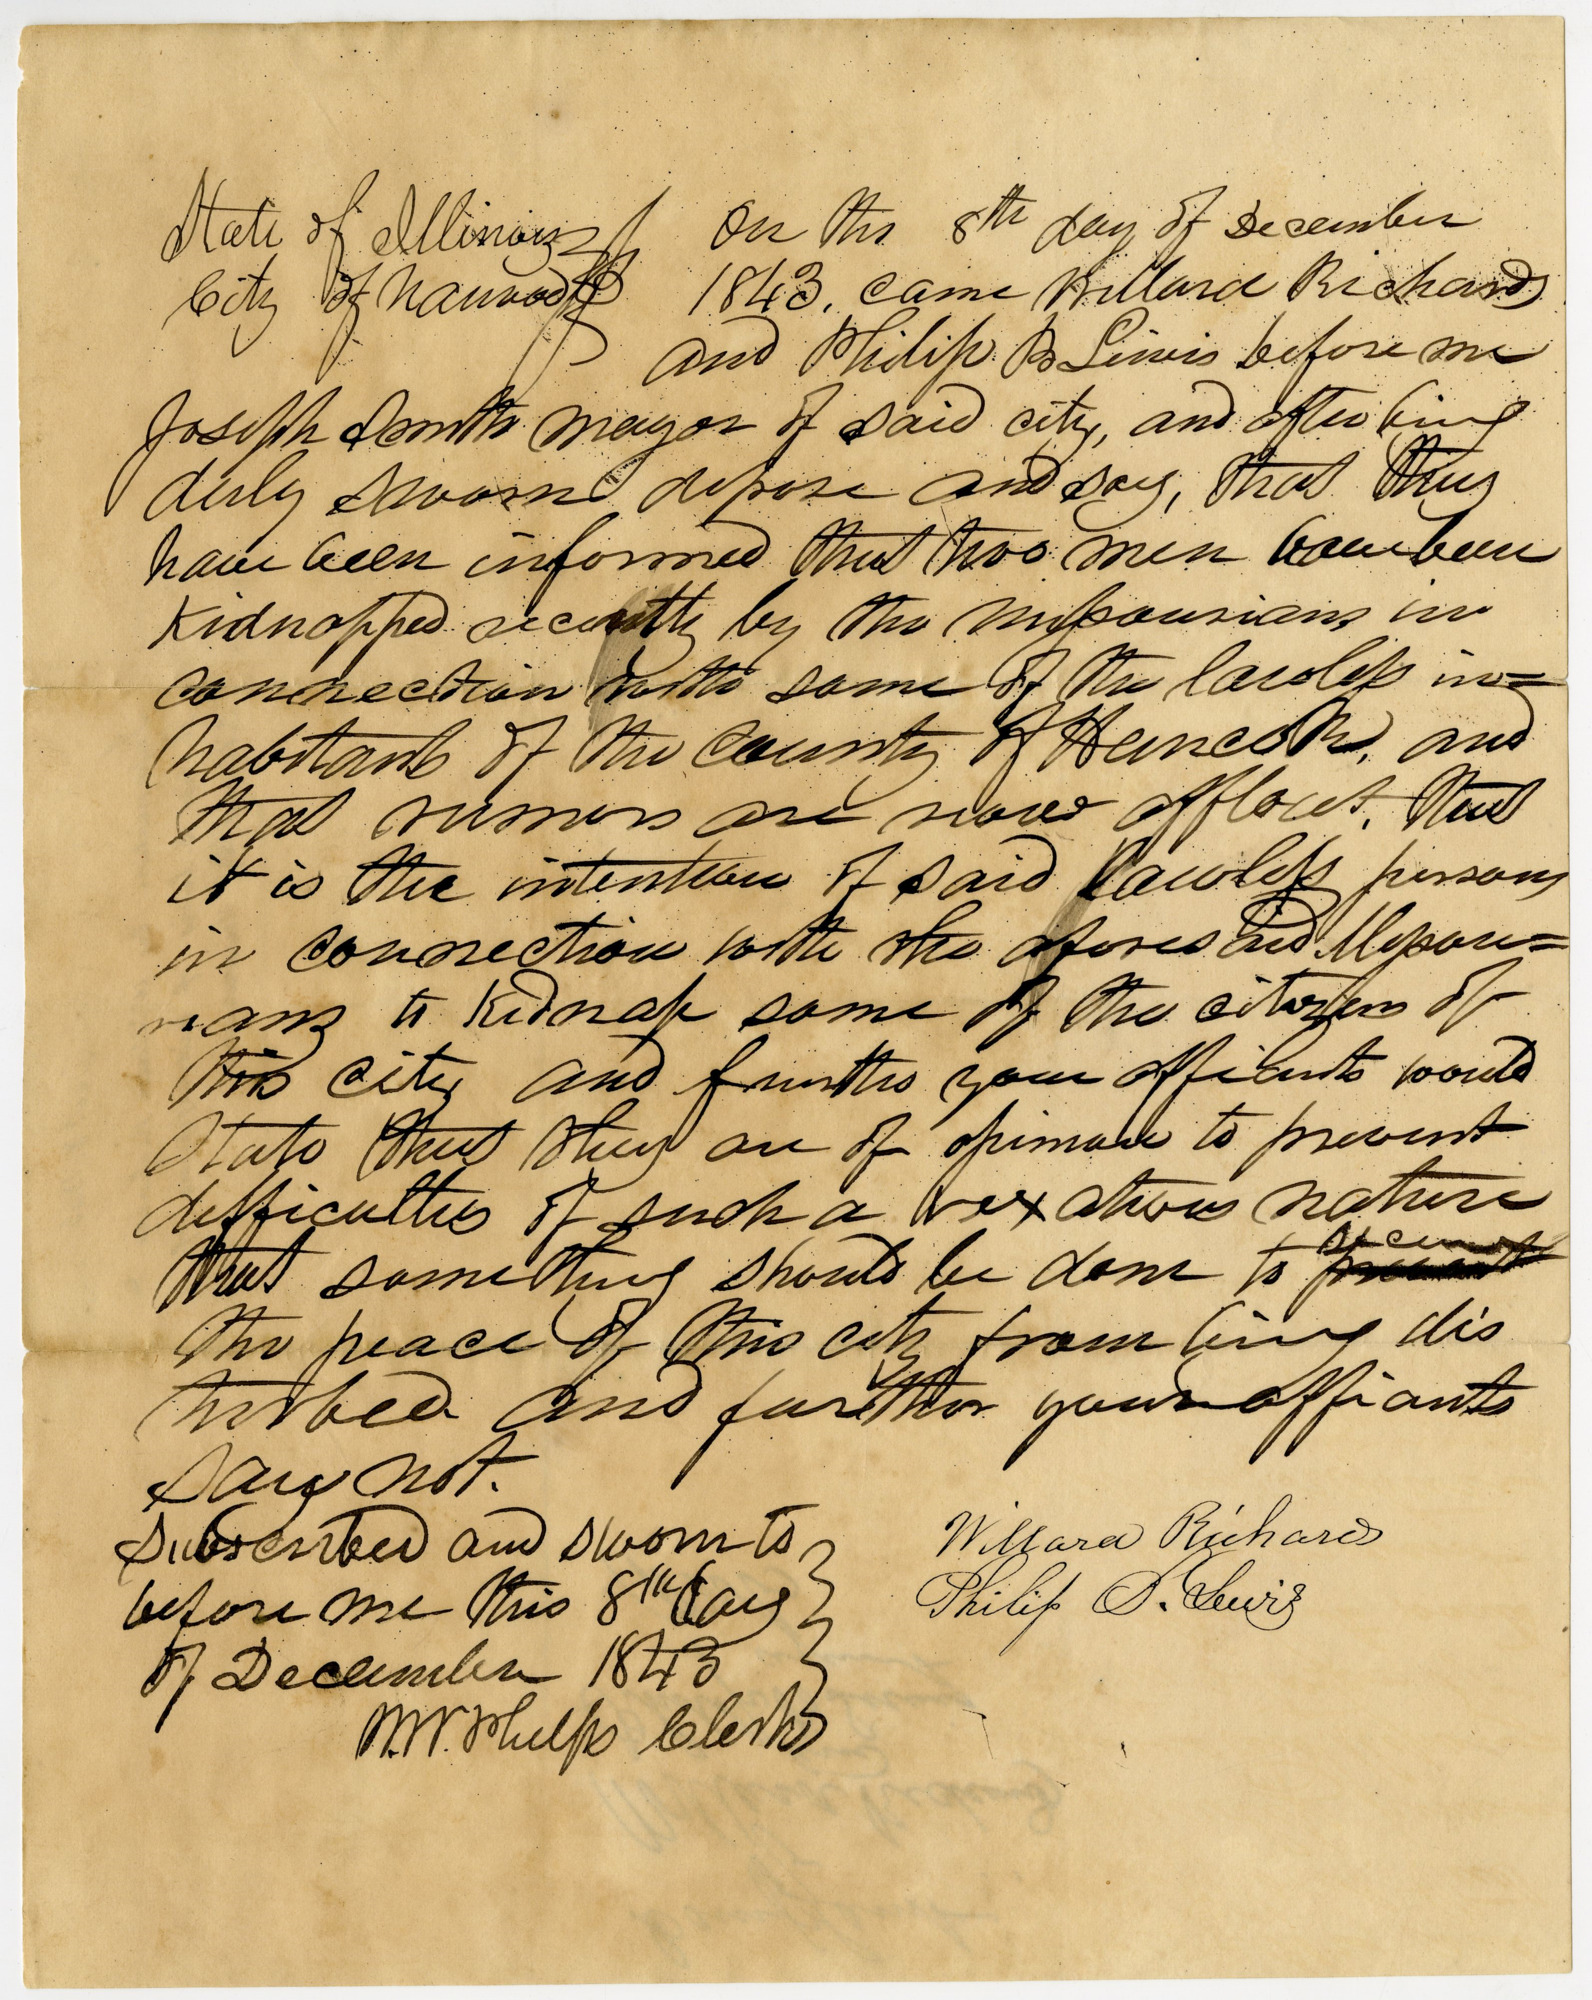 State of Illinois } On the 8th day of December
City of Nauvoo } 1843, came Willard Richards
and Philip B Lewis before me
Joseph Smith mayor of said city, and after being
duly sworn depose and say, that they
have been informed that two men have been
kidnapped recently by the missourians in
connection with some of the lawless in=
habitants of the county of Hancock, and
that rumors are now afloat, that
it is the intention of said lawless persons
in connection with the aforesaid Missou=
rians to kidnap some of the citizens of
this city and further your affiants would
state that they are of opinion to prevent
difficulties of such a vexatious nature
that something should be done to secure
the peace of this city from being dis
turbed and further your affiants
say not.
Subscribed and sworn to }
before me this 8th day
of December 1843
W. W. Phelps Clerk
Willard Richards
Philip B. Lewis